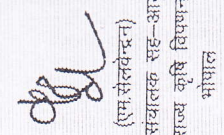 (एम.सेलवेन्द्रन)
संचालक सह-आ
राज्य कृषि विपणन
भोपाल